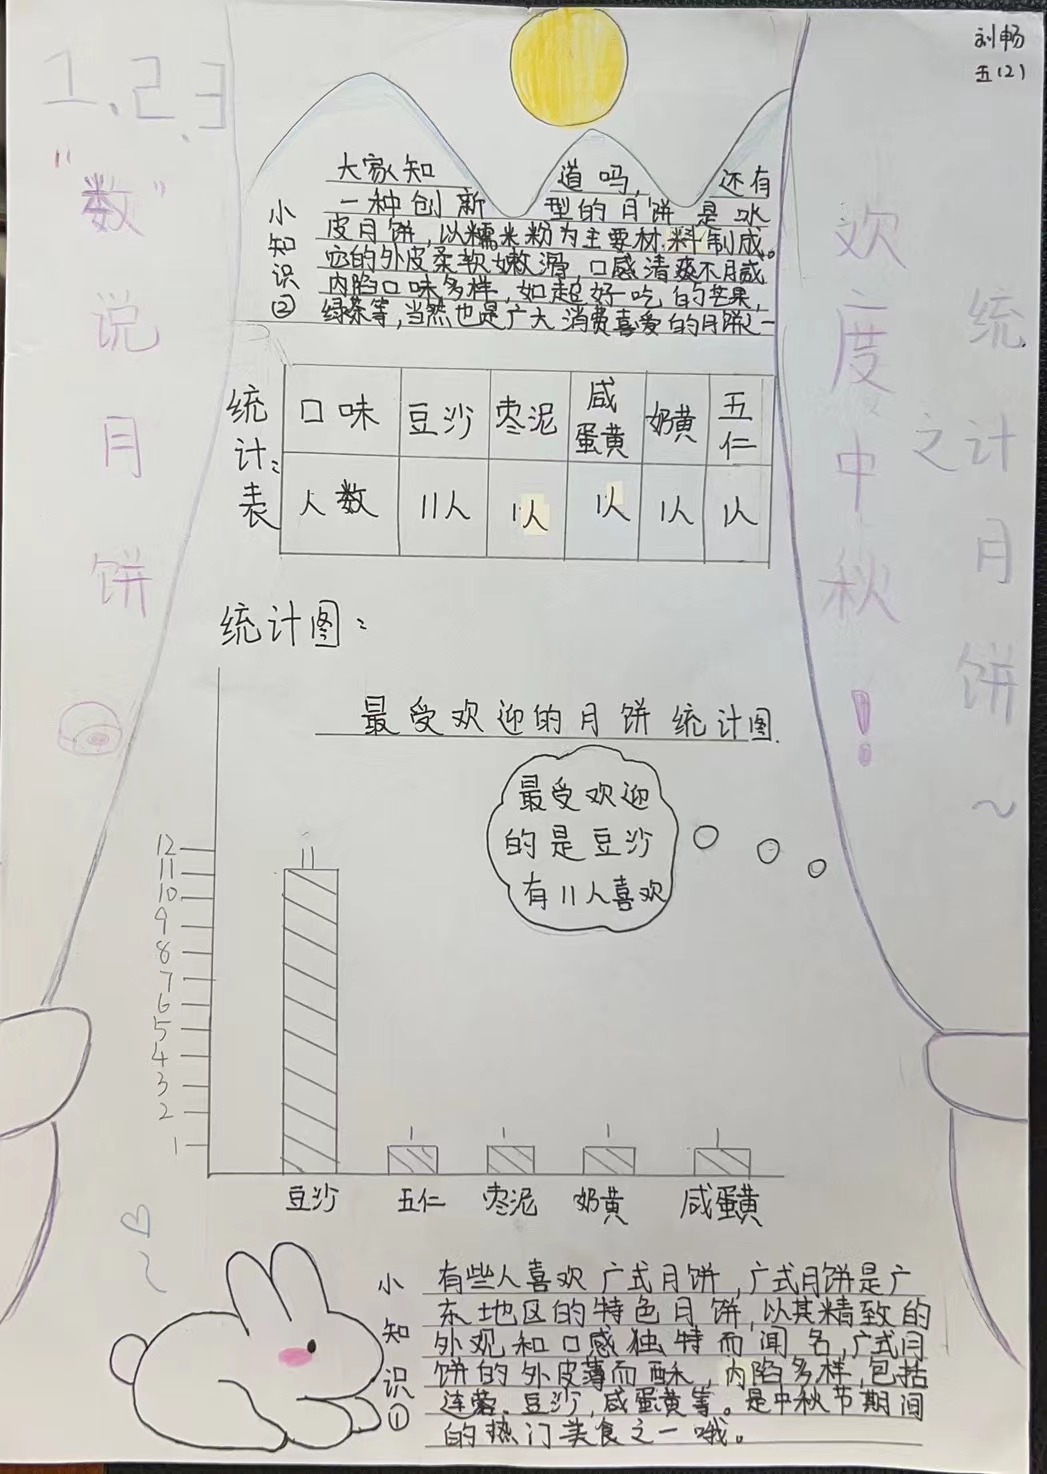 刘畅
五(2)
1、2、3
"数"说月饼
欢度中秋！
统计月饼之~
小知识②
大家知道吗，还有
一种创新型的月饼是冰
皮月饼，以糯米粉为主要材料制成。
它的外皮柔软嫩滑，口感清爽不腻
内陷口味多样，如超好吃的芒果，
绿茶等，当然也是广大消费喜爱的月饼之一
统计表：
口味 豆沙 枣泥 咸蛋黄 奶黄 五仁
人数 11人 1人 1人 1人 1人
统计图：
最受欢迎的月饼统计图.
最受欢迎
的是豆沙
有11人喜欢
12
11
10
9
8
7
6
5
4
3
2
1
11 1 1 1 1
豆沙 五仁 枣泥 奶黄 咸蛋黄
小知识①
有些人喜欢广式月饼，广式月饼是广
东地区的特色月饼，以其精致的
外观和口感独特而闻名，广式月
饼的外皮薄而酥，内陷多样，包括
连蓉、豆沙，咸蛋黄等。是中秋节期间
的热门美食之一哦。